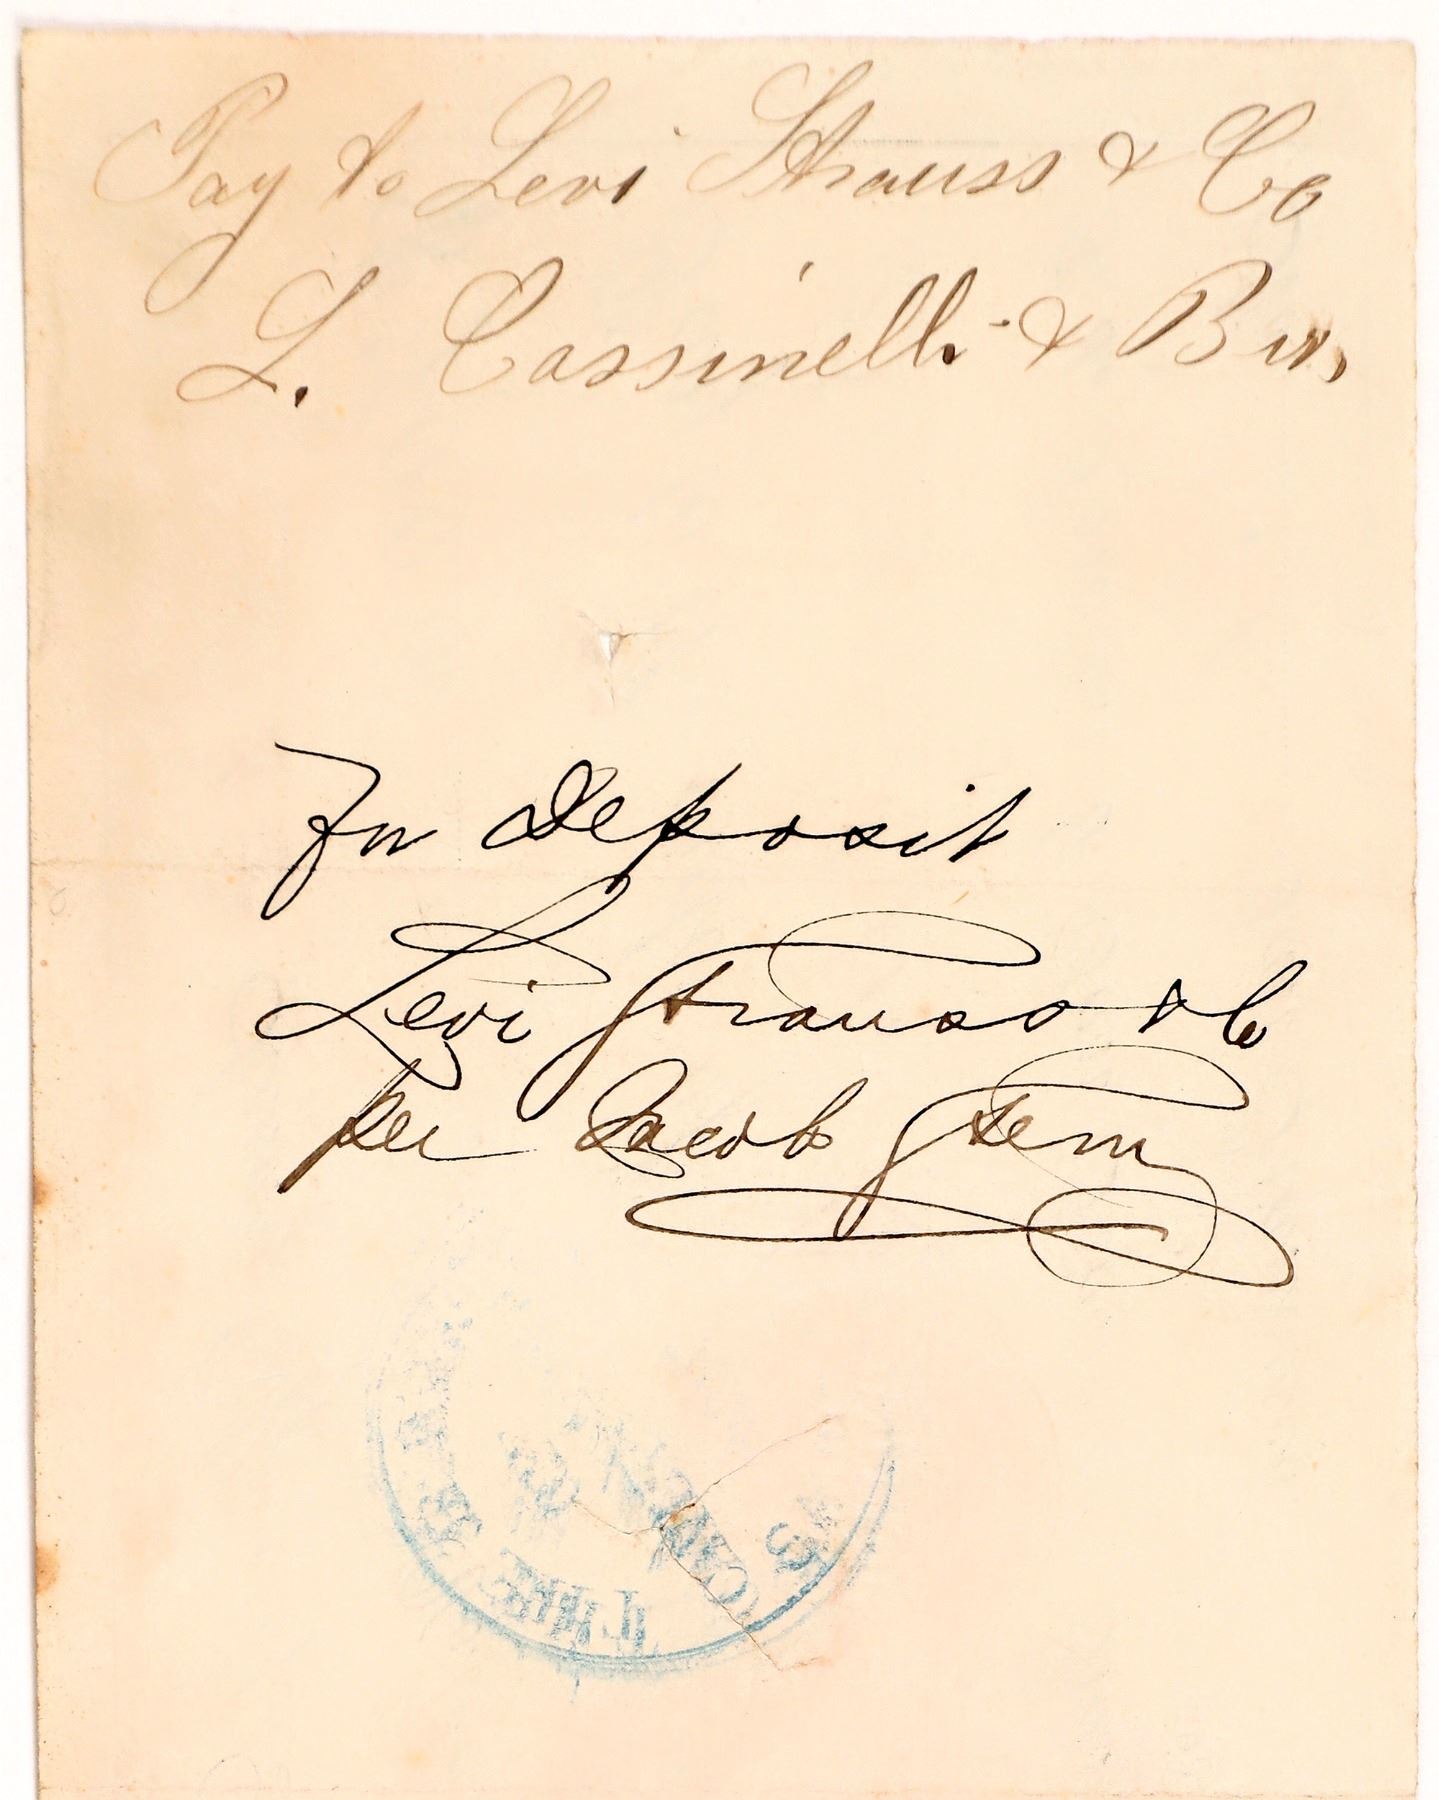 Pay to Levi Strauss & Co
L. Cassinelli & Bro,
For Deposit
Levi Strauss & Co
per Jacob Stern